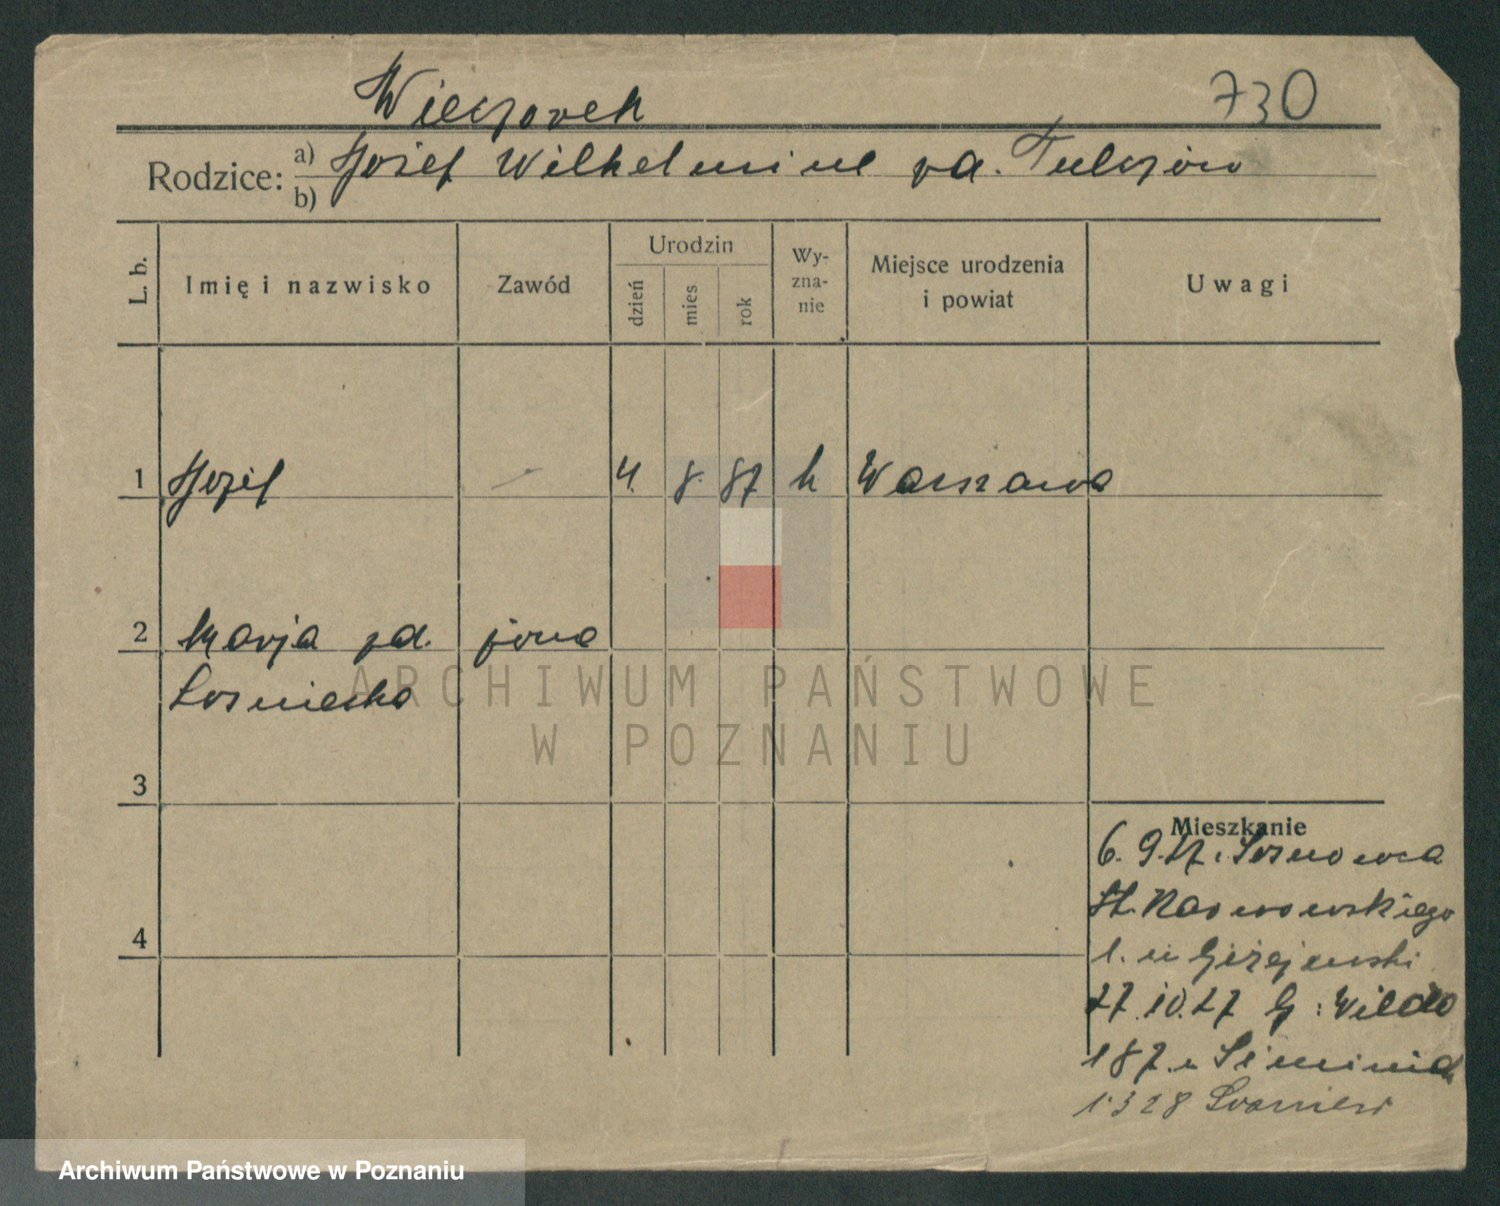 Wieczorek
730
Rodzice: a) Jozef Wilhelmine zd. Tulczów
b)
L. b.
Imię i nazwisko
Zawód
Urodzin
dzień
mies
rok
Wy-
zna-
nie
Miejsce urodzenia
i powiat
Uwagi
1 Jozef - 4. 8. 87 k Warszawa
2 Marja zd. żona
Sosniecka
3
4
Mieszkanie
6. 9. 27. Sosnowca
St.
1. u
27.10.27 G: Wilda
187 u
1.3 28
ARCHIWUM PAŃSTWOWE
W POZNANIU
Archiwum Państwowe w Poznaniu